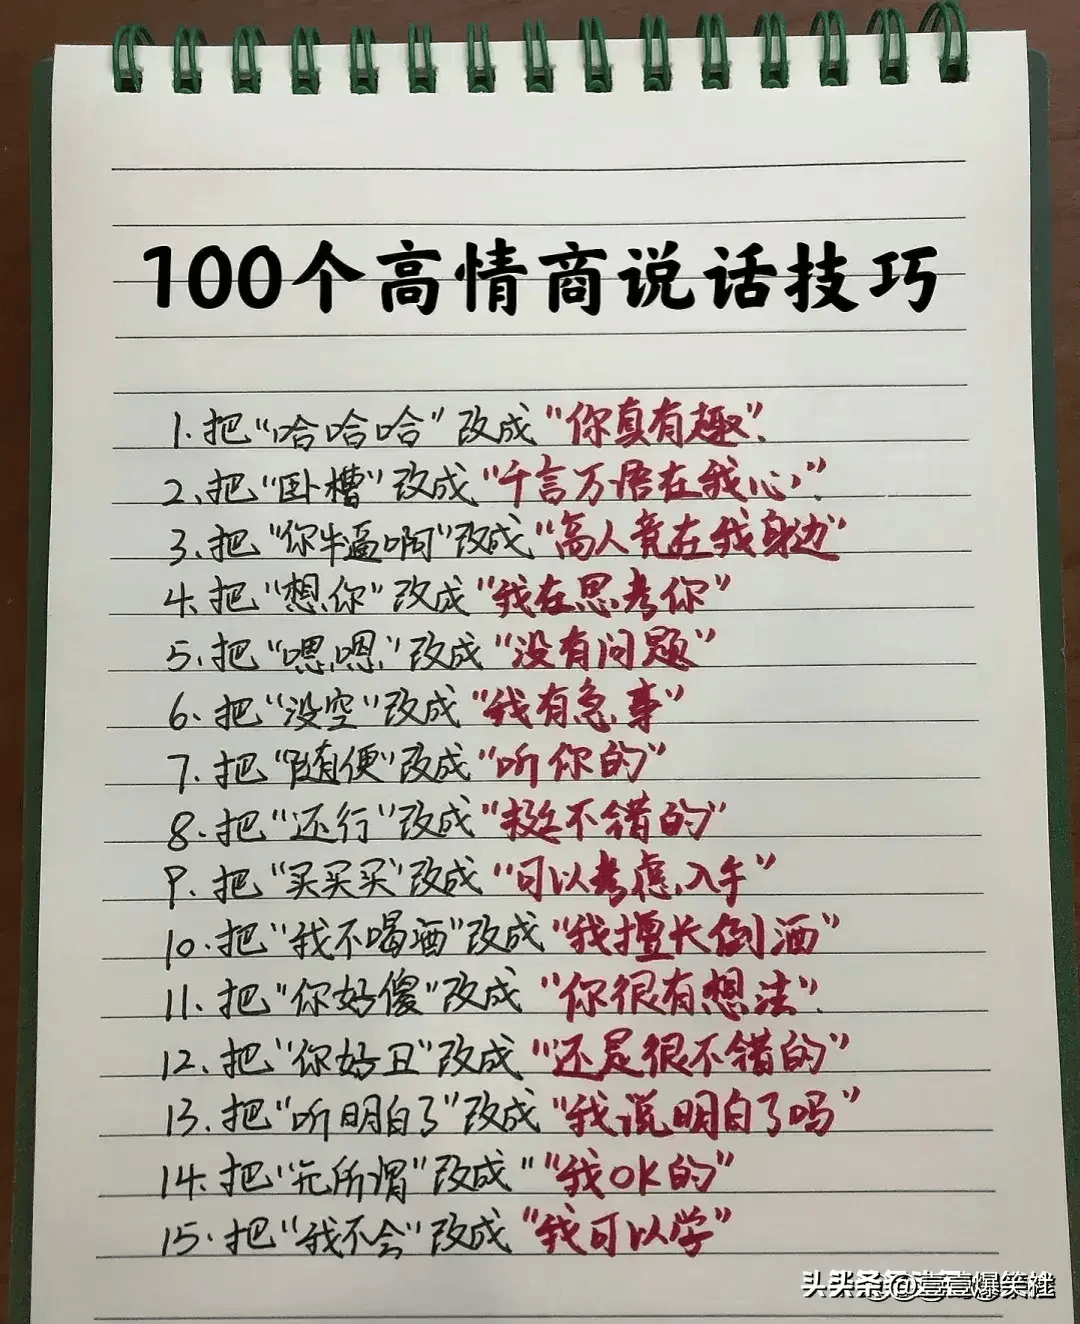 100个高情商说话技巧
1.把“哈哈哈”改成“你真有趣”.
2.把“卧槽”改成“千言万语在我心”.
3.把“你牛逼啊”改成“高人竟在我身边”
4.把“想你”改成“我在思考你”
5.把“嗯嗯”改成“没有问题”
6.把“没空”改成“我有急事”
7.把“随便”改成“听你的”
8.把“还行”改成“挺不错的”
9.把“买买买”改成“可以考虑入手”
10.把“我不喝酒”改成“我擅长倒酒”
11.把“你好傻”改成“你很有想法”.
12.把“你好丑”改成“还是很不错的”
13.把“听明白了”改成“我说明白了吗”
14.把“无所谓”改成““我OK的”
15.把“我不会”改成“我可以学”
头条@壹壹爆笑社